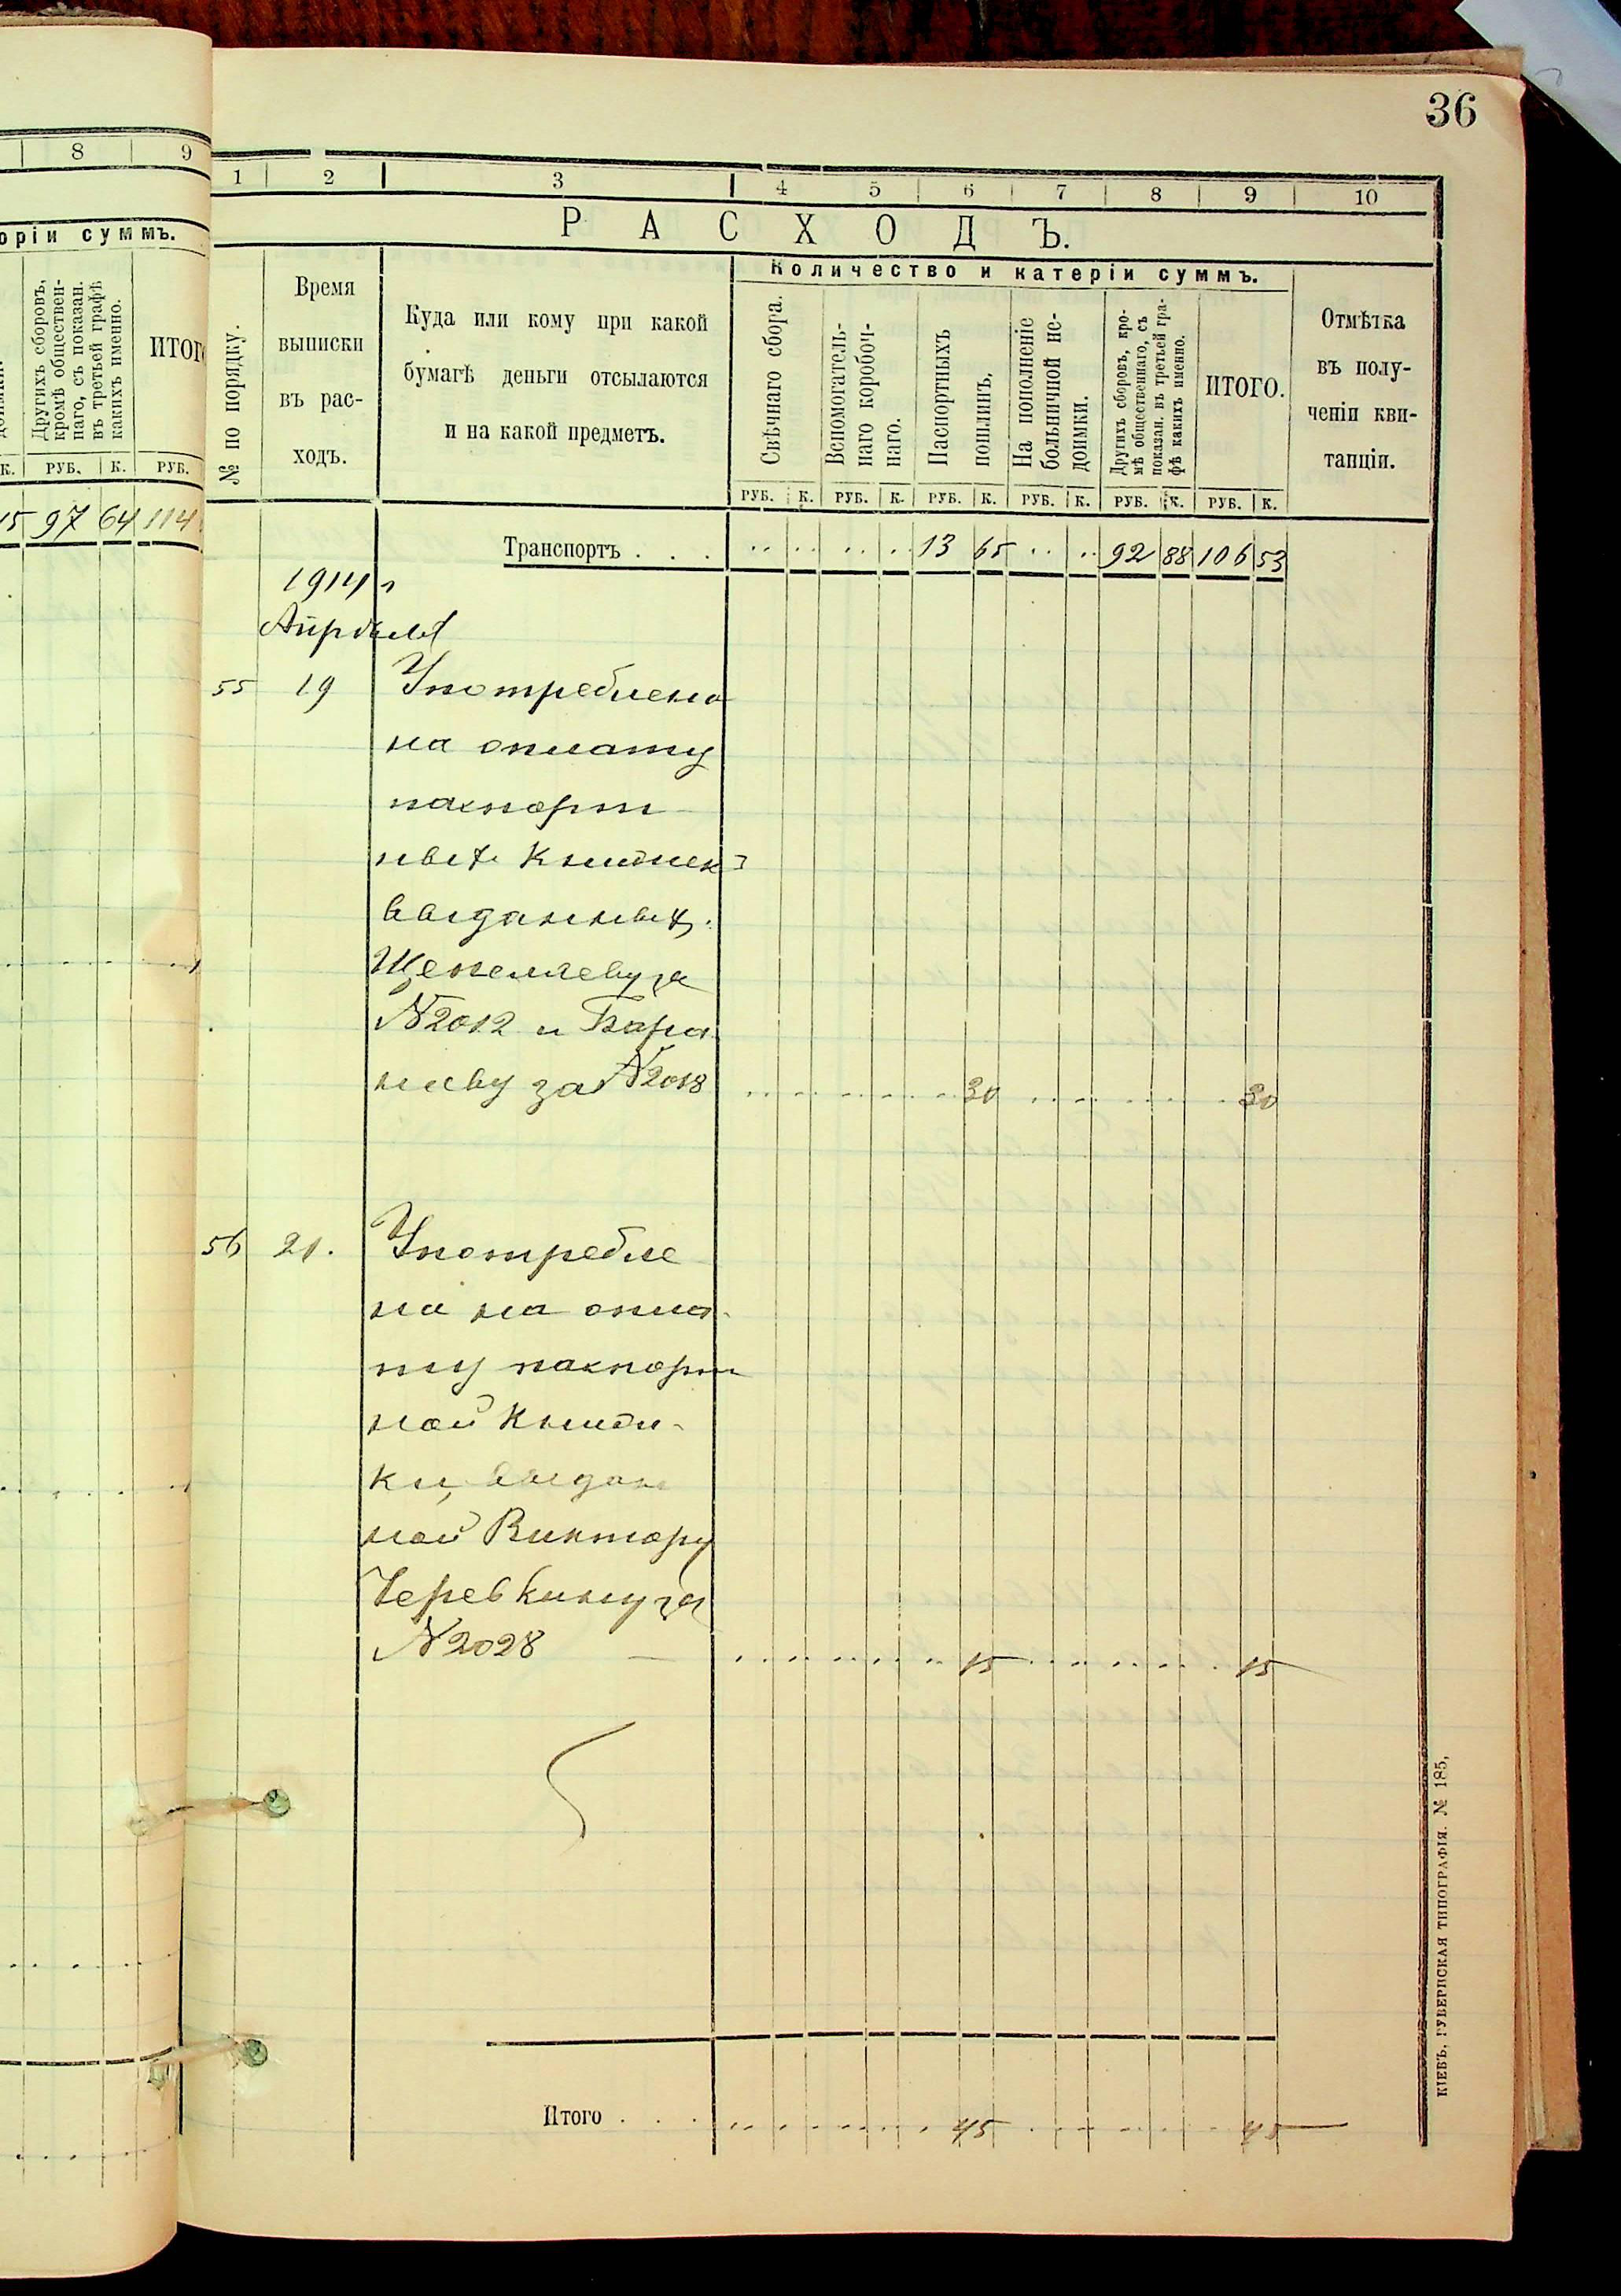 36
8 9
оріи суммъ.
Другихъ сборовъ,
кромѣ обществен-
наго, съ показан.
въ третьей графѣ
какихъ именно.
ИТОГ
К. РУБ. К. РУБ.
15 97 64 114
1 2 3 4 5 6 7 8 9 10
РАСХОДЪ.
№ по порядку.
Время
выписки
въ рас-
ходъ.
Куда или кому при какой
бумагѣ деньги отсылаются
и на какой предметъ.
Количество и катеріи суммъ.
Свѣчнаго сбора.
Вспомогатель-
наго коробоч-
наго.
Паспортныхъ
пошлинъ.
На пополненіе
больничной не-
доимки.
Другихъ сборовъ, кро-
мѣ общественнаго, съ
показан. въ третьей гра-
фѣ какихъ именно.
ИТОГО.
Отмѣтка
въ полу-
ченіи кви-
танціи.
РУБ. К. РУБ. К. РУБ. К. РУБ. К. РУБ. К. РУБ. К.
Транспортъ . . . 13 65 92 88 106 53
1914 г
Апрѣль
55 19 Употреблено
на оплату
паспорт
ныхъ книжекъ
выданныхъ
за
№ 2012 и Бара
нову за № 2018 30 30
56 21. Употребле
но на опла-
ту паспорт
ной книж-
ки, выдан
ной Виктору
Черевкину за
№ 2028 — 15 15
Итого . . . 45 45
КІЕВЪ, ГУБЕРНСКАЯ ТИПОГРАФІЯ. № 185,